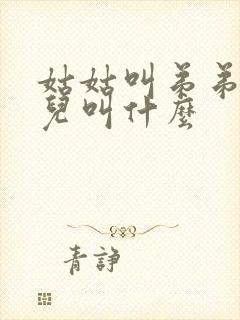 姑姑叫弟弟
兒叫什麼
青諍